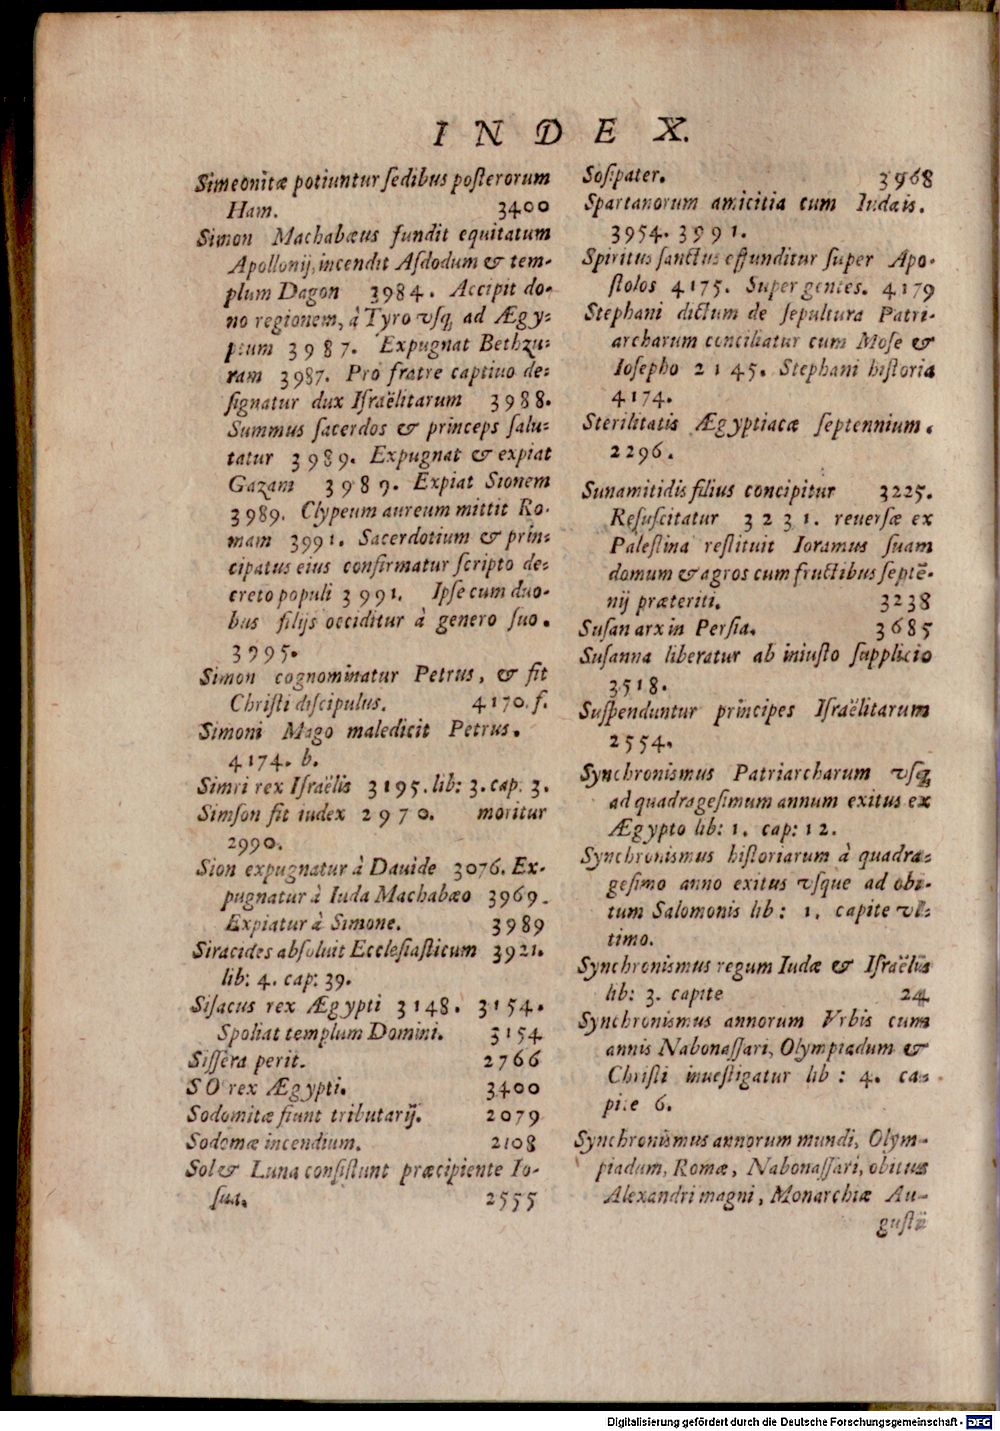 INDEX.
Simeonitæ potiuntur ſedibus poſterorum
Ham. 3400
Simon Machabæus fundit equitatum
Apollonij, incendit Aſdodum & tem-
plum Dagon 3984. Accipit do-
no regionem, à Tyro vſq; ad Ægy-
ptum 3987. Expugnat Bethzu-
ram 3987. Pro fratre captiuo de-
ſignatur dux Iſraëlitarum 3988.
Summus ſacerdos & princeps ſalu-
tatur 3989. Expugnat & expiat
Gazam 3989. Expiat Sionem
3989. Clypeum aureum mittit Ro-
mam 3991. Sacerdotium & prin-
cipatus eius confirmatur ſcripto de-
creto populi 3991. Ipſe cum duo-
bus filijs occiditur à genero ſuo.
3995.
Simon cognominatur Petrus, & fit
Chriſti diſcipulus. 4170. f.
Simoni Mago maledicit Petrus.
4174. b.
Simri rex Iſraëlis 3195. lib: 3. cap: 3.
Simſon fit iudex 2970. moritur
2990.
Sion expugnatur à Dauide 3076. Ex-
pugnatur à Iuda Machabæo 3969.
Expiatur à Simone. 3989
Siracides abſoluit Eccleſiaſticum 3921.
lib: 4. cap: 39.
Siſacus rex Ægypti 3148. 3154.
Spoliat templum Domini. 3154
Siſſera perit. 2766
SO rex Ægypti. 3400
Sodomitæ fiunt tributarij. 2079
Sodomæ incendium. 2108
Sol & Luna conſiſtunt præcipiente Io-
ſua. 2555
Soſipater. 3968
Spartanorum amicitia cum Iudæis.
3954. 3991.
Spiritus ſanctus effunditur ſuper Apo-
ſtolos 4175. Super gentes. 4179
Stephani dictum de ſepultura Patri-
archarum conciliatur cum Moſe &
Ioſepho 2145. Stephani hiſtoria
4174.
Sterilitatis Ægyptiacæ ſeptennium.
2296.
Sunamitidis filius concipitur 3225.
Reſuſcitatur 3231. reuerſæ ex
Palæſtina reſtituit Ioramus ſuam
domum & agros cum fructibus ſeptē-
nij præteriti. 3238
Suſan arx in Perſia. 3685
Suſanna liberatur ab iniuſto ſupplicio
3518.
Suſpenduntur principes Iſraëlitarum
2554.
Synchronismus Patriarcharum vſq;
ad quadrageſimum annum exitus ex
Ægypto lib: 1. cap: 12.
Synchronismus hiſtoriarum à quadra-
geſimo anno exitus vſque ad obi-
tum Salomonis lib: 1. capite vl-
timo.
Synchronismus regum Iudæ & Iſraëlis
lib: 3. capite 24
Synchronismus annorum Vrbis cum
annis Nabonaſſari, Olympiadum &
Chriſti inueſtigatur lib: 4. ca-
pite 6.
Synchronismus annorum mundi, Olym-
piadum, Romæ, Nabonaſſari, obitus
Alexandri magni, Monarchiæ Au-
guſti
Digitalisierung gefördert durch die Deutsche Forschungsgemeinschaft - DFG